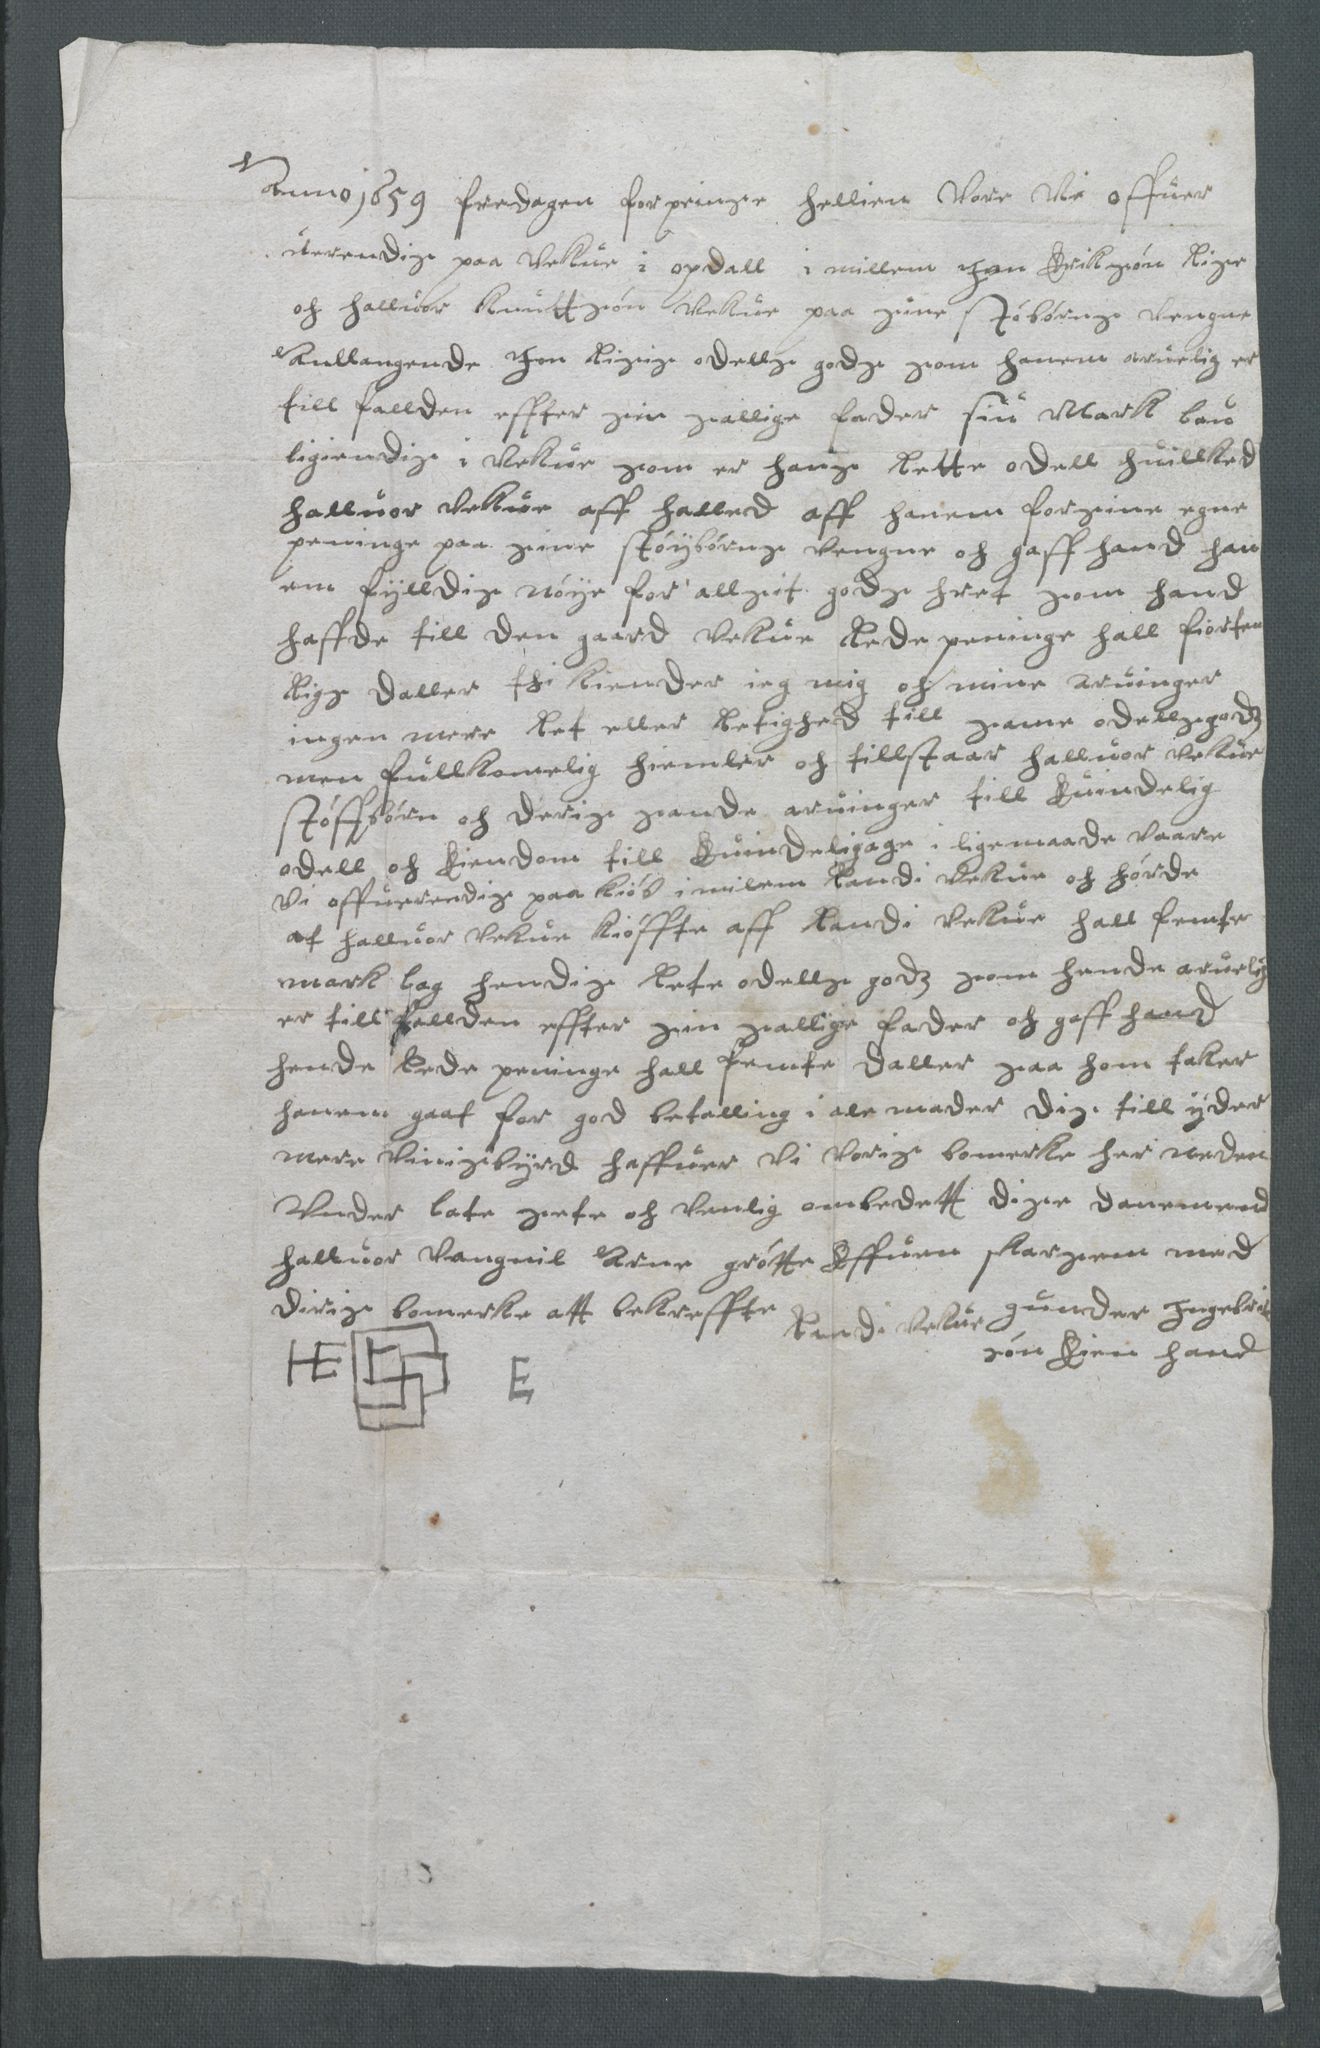 Anno 1659 fredagen for pinzse hellien Vore Vie offuer
uerendis paa Vekue i opdall i millem Jon Erikzøn Rise
och halluor knuttzøn Vekue paa sine støbørns Vengne
Anllangende Jon Risis odells gods som hanem aruelig er
till fallden effter sin sallige fader siu Mark bau
ligiendis i Vekue som er hans Rette odell huillked
halluor Vekue aff halled aff hanem for sine egne
peninge paa sine støybørns Vengne och gaff hand han
em fylldis nøye for allsit gods hret som hand
haffde till den gaard Vekue Rede peninge hall fiorten
Rigs daller thi kiender ieg mig och mine aruinger
ingen mere Ret eller Retighed till same odellsgods
men fullkomelig hiemler och tillstaar halluor Vekue
støffbørn och deris sande aruinger till Euindelig
odell och Eiendom till Euindeligage i ligemaade Vaare
Vi offuerendis paa kiøb imilem Randi Vekue och hørde
at halluor Vekue kiøffte aff Randi Vekue hall femte
mark lag hendis Rete odells gods som hende aruelig
er till fallden effter sin sallige fader och gaff hand
hende Rede peninge hall femte daller saa hom taker
hanem gaat for god betalling i ale mader dis till yder
mere Vinisbyrd haffuer Vi Voris bomerke her neden
Vnder late sete och Venlig ombedett dise danemend
halluor Vangnil Arne grøtte Effuen skarsem med
diris bomerke att bekreffte Randi Vekue gunder Ingebrit
søn Eien hand
HE E